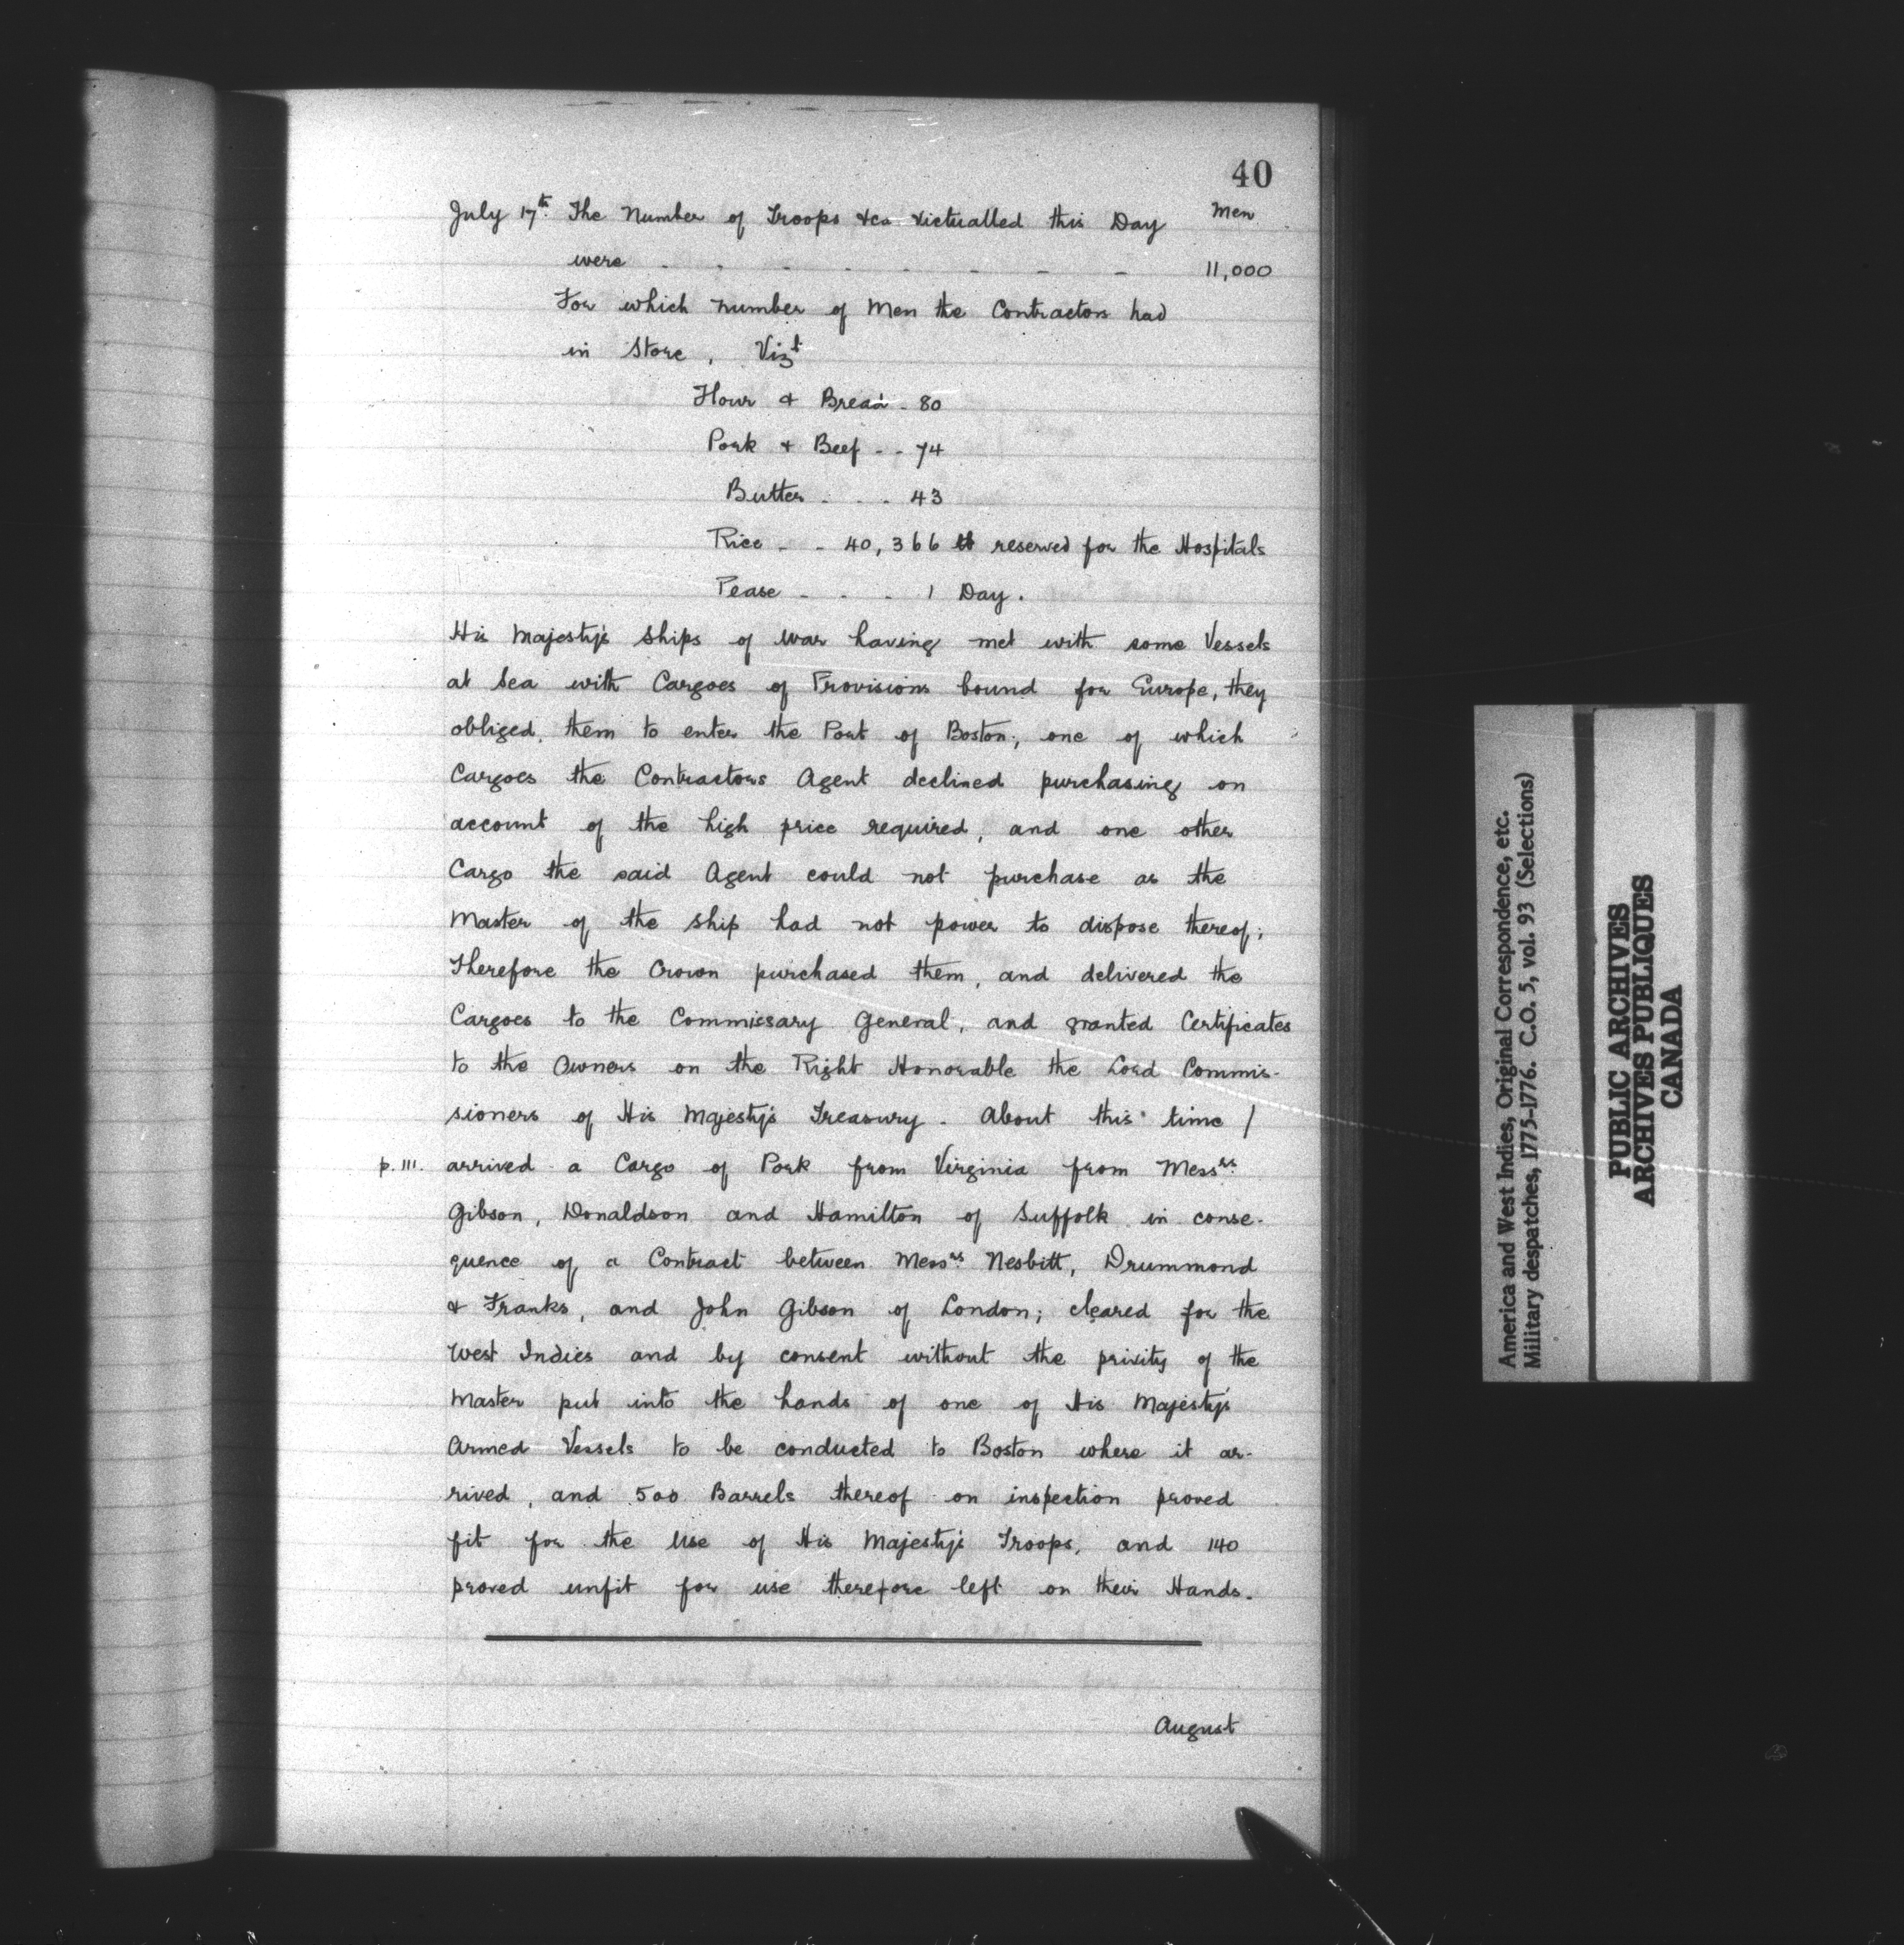 40
July 17th. The Number of Troops &ca Victualled this Day Men
were - - - - - - - - 11,000
For which number of Men the Contractors had
in Store, Vizt
Flour & Bread - 80
Pork & Beef - - 74
Butter - - - 43
Rice - - 40,366 lb reserved for the Hospitals
Pease - - - 1 Day.
His Majesty's Ships of War having met with some Vessels
at Sea with Cargoes of Provisions bound for Europe, they
obliged them to enter the Port of Boston; one of which
Cargoes the Contractors Agent declined purchasing on
account of the high price required, and one other
Cargo the said Agent could not purchase as the
Master of the Ship had not power to dispose thereof;
Therefore the Crown purchased them, and delivered the
Cargoes to the Commissary General, and granted Certificates
to the Owners on the Right Honorable the Lord Commis-
sioners of His Majesty's Treasury. About this time /
p. 111. arrived a Cargo of Pork from Virginia from Messrs.
Gibson, Donaldson and Hamilton of Suffolk in conse-
quence of a Contract between Messrs. Nesbitt, Drummond
& Franks, and John Gibson of London; cleared for the
West Indies and by consent without the privity of the
Master put into the hands of one of His Majesty's
Armed Vessels to be conducted to Boston where it ar-
rived, and 500 Barrels thereof on inspection proved
fit for the Use of His Majesty's Troops, and 140
proved unfit for use therefore left on their Hands.
August
America and West Indies, Original Correspondence, etc.
Military despatches, 1775-1776. C.O. 5, vol. 93 (Selections)
PUBLIC ARCHIVES
ARCHIVES PUBLIQUES
CANADA